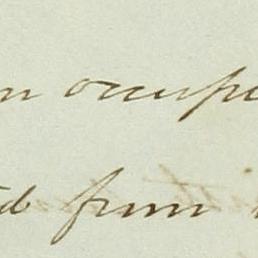 n occupi
d from